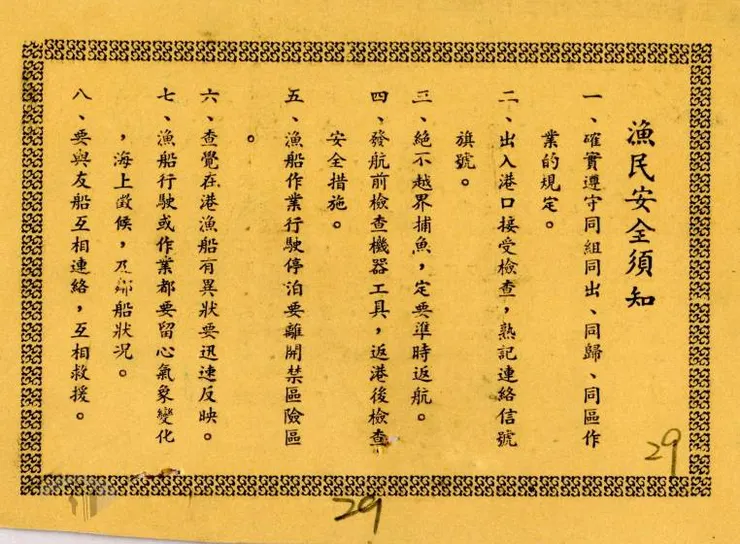 漁民安全須知
一、確實遵守同組同出、同歸、同區作
業的規定。
二、出入港口接受檢查，熟記連絡信號
旗號。
三、絕不越界捕魚，定要準時返航。
四、發航前檢查機器工具，返港後檢查
安全措施。
五、漁船作業行駛停泊要離開禁區險區
。
六、查覺在港漁船有異狀要迅速反映。
七、漁船行駛或作業都要留心氣象變化
，海上徵候，及鄰船狀況。
八、要與友船互相連絡，互相救援。
29
29